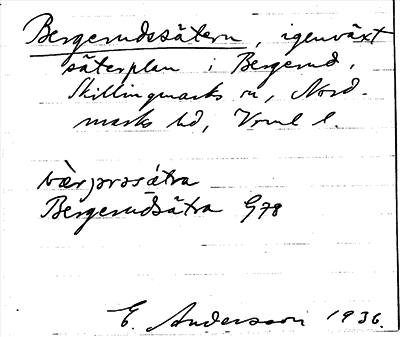 Bergerudssätern, igenväxt
säterplan i Bergerud,
Skillingmarks sn, Nord-
marks hd, Vrml l.
bærprosátra
Bergerudsätra G78
E. Andersson 1936.